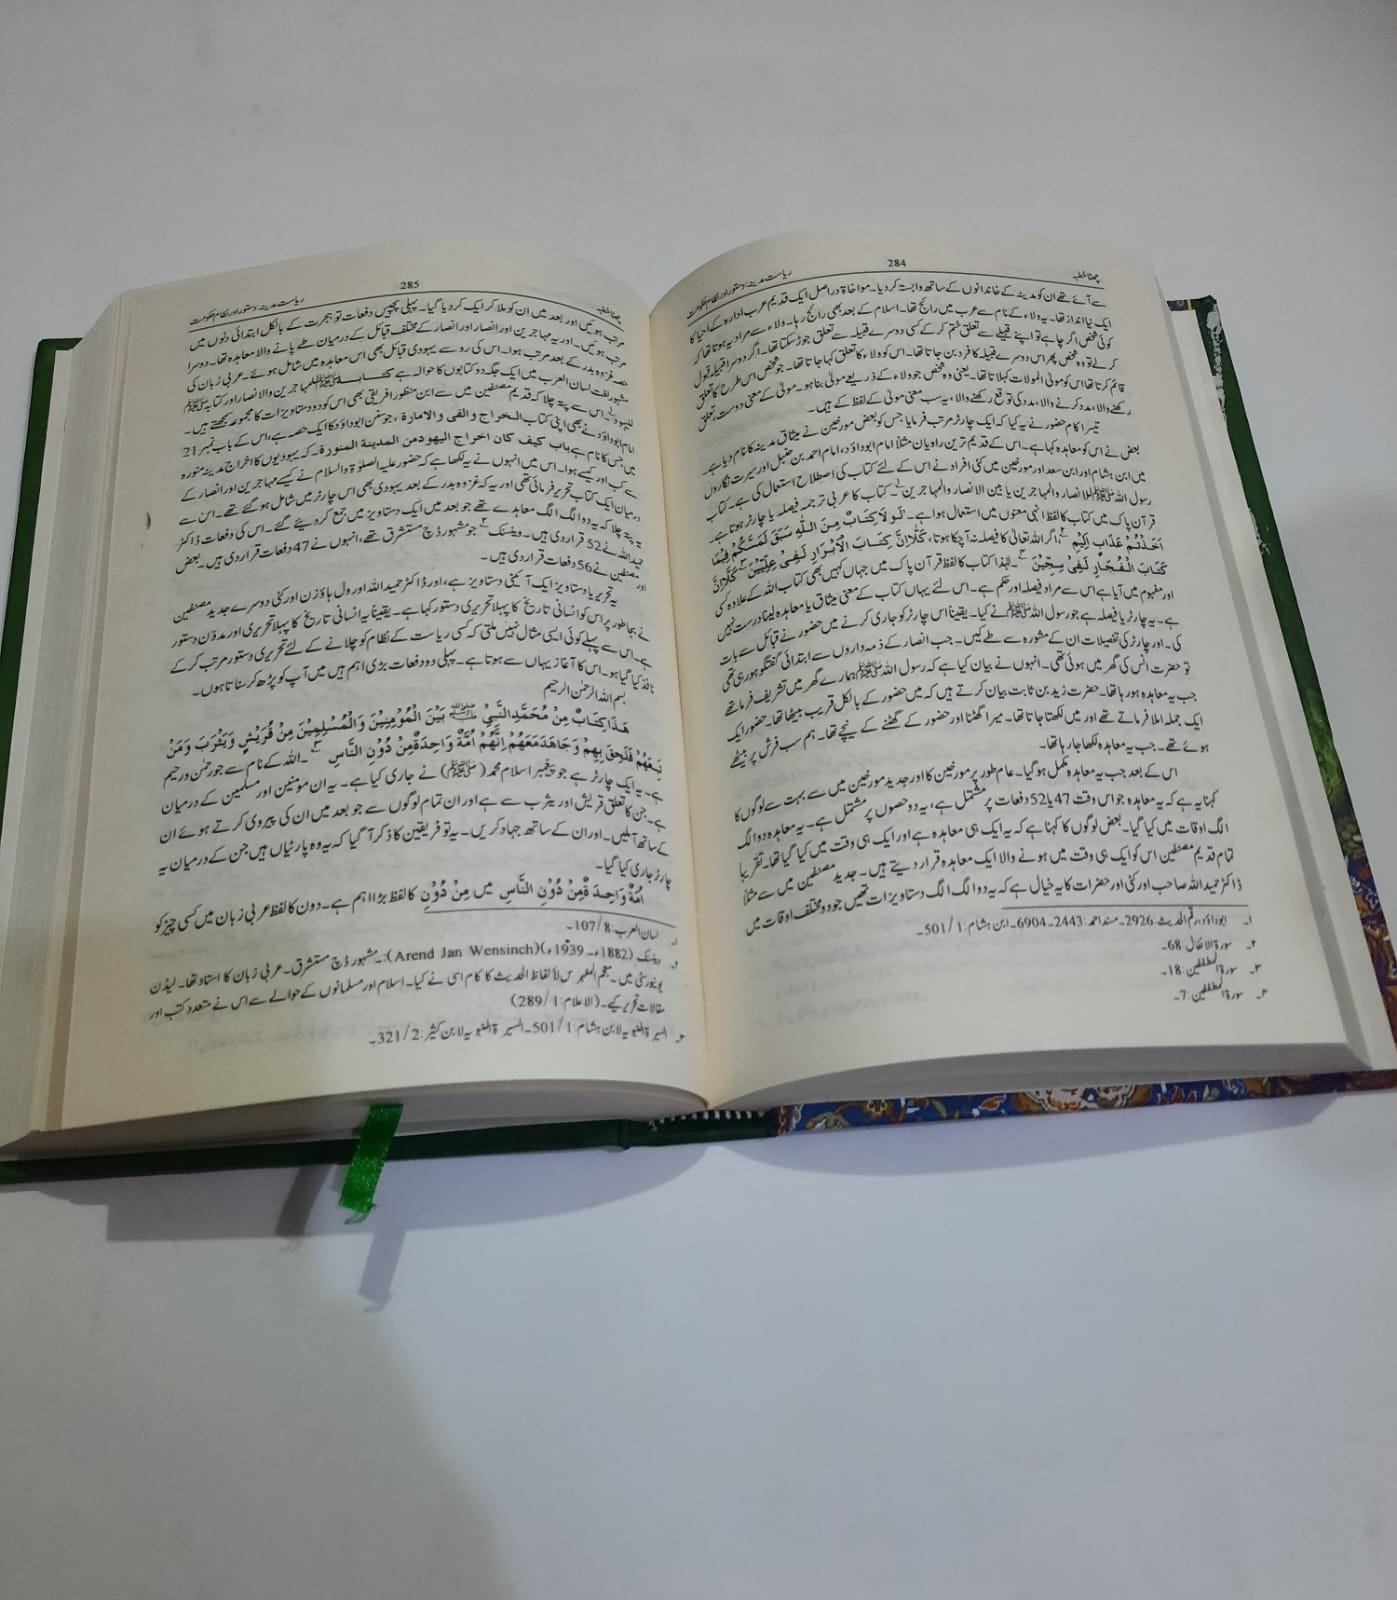 چھٹا خطبہ 284 ریاست مدینہ: دستور اور نظام حکومت
سے آئے تھے ان کو مدینہ کے خاندانوں کے ساتھ وابستہ کر دیا۔ مواخاۃ دراصل ایک قدیم عرب ادارہ کے احیا کا
ایک نیا انداز تھا۔ یہ ولاء کے نام سے عرب میں رائج تھا۔ اسلام کے بعد بھی رائج رہا۔ ولاء سے مراد یہ ہوتا تھا کہ
کوئی شخص اگر چاہے تو اپنے قبیلے سے تعلق ختم کر کے کسی دوسرے قبیلہ سے تعلق جوڑ سکتا تھا۔ اگر دوسرا قبیلہ قبول
کر لے تو وہ شخص پھر اس دوسرے قبیلہ کا فرد بن جاتا تھا۔ اس کو ولاء کا تعلق کہا جاتا تھا۔ جو شخص اس طرح کا تعلق
قائم کرتا تھا اس کو مولیٰ الموالات کہلاتا تھا۔ یعنی وہ شخص جو ولاء کے ذریعے مولیٰ بنا ہو۔ مولیٰ کے معنی دوست، تعلق
رکھنے والا، مدد کرنے والا، مدد کی توقع رکھنے والا، یہ سب معنی مولیٰ کے لفظ کے ہیں۔
تیسرا کام حضور نے یہ کیا کہ ایک چارٹر مرتب فرمایا جس کو بعض مورخین نے میثاق مدینہ کا نام دیا ہے۔
بعض نے اس کو معاہدہ کہا ہے۔ اس کے قدیم ترین راویان مثلاً امام ابوداؤد، امام احمد بن حنبل اور سیرت نگاروں
میں ابن ہشام اور ابن سعد اور مورخین میں کئی افراد نے اس کے لئے کتاب کی اصطلاح استعمال کی ہے۔ کتاب
رسول اللہ ﷺ للانصار والمہاجرین یا بین الانصار والمہاجرین۱۔ کتاب کا عربی ترجمہ فیصلہ یا چارٹر ہوتا ہے۔
قرآن پاک میں کتاب کا لفظ انہی معنوں میں استعمال ہوا ہے۔ لَوْ لَا كِتَابٌ مِنَ اللّٰهِ سَبَقَ لَمَسَّكُمْ فِيْمَا
اَخَذْتُمْ عَذَابٌ اَلِيْمٌ۲، اگر اللہ تعالیٰ کا فیصلہ نہ آ چکا ہوتا، كَلَّا اِنَّ كِتَابَ الْاَبْرَارِ لَفِيْ عِلِّيِّيْنَ۳، كَلَّا اِنَّ
كِتَابَ الْفُجَّارِ لَفِيْ سِجِّيْنَ۴۔ لہٰذا کتاب کا لفظ قرآن پاک میں جہاں کہیں بھی کتاب اللہ کے علاوہ کسی
اور مفہوم میں آیا ہے اس سے مراد فیصلہ اور حکم ہے۔ اس لئے یہاں کتاب کے معنی میثاق یا معاہدہ لینا درست نہیں
ہے۔ یہ چارٹر یا فیصلہ ہے جو رسول اللہ ﷺ نے کیا۔ یقیناً اس چارٹر کو جاری کرنے میں حضور نے قبائل سے بات
کی۔ اور چارٹر کی تفصیلات ان کے مشورہ سے طے کیں۔ جب انصار کے ذمہ داروں سے ابتدائی گفتگو ہو رہی تھی
تو حضرت انس کی گھر میں ہوئی تھی۔ انہوں نے بیان کیا ہے کہ رسول اللہ ﷺ ہمارے گھر میں تشریف فرما تھے
جب یہ معاہدہ ہو رہا تھا۔ حضرت زید بن ثابت بیان کرتے ہیں کہ میں حضور کے بالکل قریب بیٹھا تھا۔ حضور ایک
ایک جملہ املا فرماتے تھے اور میں لکھتا جاتا تھا۔ میرا گھٹنا اور حضور کے گھٹنے کے نیچے تھا۔ ہم سب فرش پر بیٹھے
ہوئے تھے۔ جب یہ معاہدہ لکھا جا رہا تھا۔
اس کے بعد جب یہ معاہدہ مکمل ہو گیا۔ عام طور پر مورخین کا اور جدید مورخین میں سے بہت سے لوگوں کا
کہنا یہ ہے کہ یہ معاہدہ جو اس وقت 47 یا 52 دفعات پر مشتمل ہے، یہ دو حصوں پر مشتمل ہے۔ یہ معاہدہ دو الگ
الگ اوقات میں کیا گیا۔ بعض لوگوں کا کہنا ہے کہ یہ ایک ہی معاہدہ ہے اور ایک ہی وقت میں کیا گیا تھا۔ تقریباً
تمام قدیم مصنفین اس کو ایک ہی وقت میں ہونے والا ایک معاہدہ قرار دیتے ہیں۔ جدید مصنفین میں سے مثلاً
ڈاکٹر حمید اللہ صاحب اور کئی اور حضرات کا یہ خیال ہے کہ یہ دو الگ الگ دستاویزات تھیں جو دو مختلف اوقات میں
۱۔ ابوداؤد، رقم الحدیث: 2926۔ مسند احمد: 2443۔ 6904۔ ابن ہشام: 501/1۔
۲۔ سورۃ الانفال: 68۔
۳۔ سورۃ المطففین: 18۔
۴۔ سورۃ المطففین: 7۔
چھٹا خطبہ 285 ریاست مدینہ: دستور اور نظام حکومت
مرتب ہوئیں اور بعد میں ان کو ملا کر ایک کر دیا گیا۔ پہلی پچیس دفعات تو ہجرت کے بالکل ابتدائی دنوں میں
مرتب ہوئیں۔ اور یہ مہاجرین اور انصار اور انصار کے مختلف قبائل کے درمیان طے پانے والا معاہدہ تھا۔ دوسرا
حصہ غزوہ بدر کے بعد مرتب ہوا۔ اس کی رو سے یہودی قبائل بھی اس معاہدہ میں شامل ہوئے۔ عربی زبان کی
مشہور لغت لسان العرب میں ایک جگہ دو کتابوں کا حوالہ ہے کتابہ ﷺ للمہاجرین والانصار اور کتابہ ﷺ
للیہود۱۔ اس سے پتہ چلا کہ قدیم مصنفین میں سے ابن منظور افریقی بھی اس کو دو دستاویزات کا مجموعہ سمجھتے ہیں۔
امام ابوداؤد نے بھی اپنی کتاب الخراج والفیٔ والامارة، جو سنن ابوداؤد کا ایک حصہ ہے، اس کے باب نمبر 21
میں جس کا نام ہے باب کیف کان اخراج الیہود من المدینة المنورة۔ کہ یہودیوں کا اخراج مدینہ منورہ
سے کب اور کیسے ہوا۔ اس میں انہوں نے یہ لکھا ہے کہ حضور علیہ الصلوٰۃ والسلام نے کیسے مہاجرین اور انصار کے
درمیان ایک کتاب تحریر فرمائی تھی اور یہ کہ غزوہ بدر کے بعد یہودی بھی اس چارٹر میں شامل ہو گئے تھے۔ اس سے
یہ پتہ چلا کہ یہ دو الگ الگ معاہدے تھے جو بعد میں ایک دستاویز میں جمع کر دیئے گئے۔ اس کی دفعات ڈاکٹر
حمید اللہ نے 52 قرار دی ہیں۔ وینسنک۲ جو مشہور ڈچ مستشرق تھے، انہوں نے 47 دفعات قرار دی ہیں۔ بعض
اور مصنفین نے 56 دفعات قرار دی ہیں۔
یہ تحریر یا دستاویز ایک آئینی دستاویز ہے، اور ڈاکٹر حمید اللہ اور ول ہاؤزن اور کئی دوسرے جدید مصنفین
نے بجا طور پر اس کو انسانی تاریخ کا پہلا تحریری دستور کہا ہے۔ یقیناً یہ انسانی تاریخ کا پہلا تحریری اور مدون دستور
ہے۔ اس سے پہلے کوئی ایسی مثال نہیں ملتی کہ کسی ریاست کے نظام کو چلانے کے لئے تحریری دستور مرتب کر کے
نافذ کیا گیا ہو۔ اس کا آغاز یہاں سے ہوتا ہے۔ پہلی دو دفعات بڑی اہم ہیں میں آپ کو پڑھ کر سناتا ہوں۔
بسم اللہ الرحمٰن الرحیم
هٰذَا كِتَابٌ مِنْ مُحَمَّدِ النَّبِيِّ ﷺ بَيْنَ الْمُؤْمِنِيْنَ وَالْمُسْلِمِيْنَ مِنْ قُرَيْشٍ وَيَثْرِبَ وَمَنْ
تَبِعَهُمْ فَلَحِقَ بِهِمْ وَجَاهَدَ مَعَهُمْ اِنَّهُمْ اُمَّةٌ وَاحِدَةٌ مِنْ دُوْنِ النَّاسِ۳۔ اللہ کے نام سے جو رحمٰن و رحیم
ہے۔ یہ ایک چارٹر ہے جو پیغمبر اسلام محمد (ﷺ) نے جاری کیا ہے۔ یہ ان مومنین اور مسلمین کے درمیان
ہے۔ جن کا تعلق قریش اور یثرب سے ہے اور ان تمام لوگوں سے جو بعد میں ان کی پیروی کرتے ہوئے ان
کے ساتھ آملیں۔ اور ان کے ساتھ جہاد کریں۔ یہ تو فریقین کا ذکر آ گیا کہ یہ وہ پارٹیاں ہیں جن کے درمیان یہ
چارٹر جاری کیا گیا۔
اُمَّةٌ وَاحِدَةٌ مِنْ دُوْنِ النَّاسِ میں مِنْ دُوْنِ کا لفظ بڑا اہم ہے۔ دون کا لفظ عربی زبان میں کسی چیز کو
۱۔ لسان العرب: 107/8۔
۲۔ وینسنک (1882ء۔ 1939ء) (Arend Jan Wensinch):۔ مشہور ڈچ مستشرق۔ عربی زبان کا استاد تھا۔ لیڈن
یونیورسٹی میں۔ معجم المفہرس لألفاظ الحدیث کا کام اسی نے کیا۔ اسلام اور مسلمانوں کے حوالے سے اس نے متعدد کتب اور
مقالات تحریر کیے۔ (الاعلام: 289/1)
۳۔ السیرۃ النبویہ لابن ہشام: 501/1۔ السیرۃ النبویہ لابن کثیر: 321/2۔